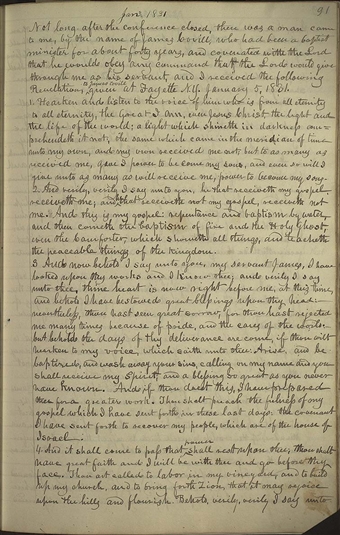 Jan. 1831
91
Not long after the conference closed, there was a man came
to me, by the name of James Covill, who had been a baptist
minister for about forty years, and covenanted with the Lord
that he would obey any command that the Lord would give
through me as his servant, and I received the following
Revelation, given at Fayette N.Y. January 5, 1831.
1. Hearken and listen to the voice of him who is from all eternity
to all eternity, the Great I Am, even Jesus Christ the light and
the life of the world; a light which shineth in darkness and
comprehendeth it not; the same which came in the meridian of time
unto my own, and my own received me not; but to as many as
received me, gave I power to become my sons, and even so will I
give unto as many as will receive me, power to become my sons.
2. And verily, verily I say unto you, he that receiveth my gospel,
receiveth me; and he that receiveth not my gospel, receiveth not
me. And this is my gospel: repentance and baptism by water,
and then cometh the baptism of fire and the Holy Ghost,
even the Comforter, which showeth all things, and teacheth
the peaceable things of the kingdom.
3 And now behold I say unto you, my servant James, I have
looked upon thy works and I know thee; and verily I say
unto thee, thine heart is now right before me, at this time,
and behold I have bestowed great blessings upon thy head:
nevertheless, thou hast seen great sorrow, for thou hast rejected
me many times because of pride, and the cares of the world:
but behold the days of thy deliverance are come, if thou wilt
hearken to my voice, which saith unto thee: Arise, and be
baptized, and wash away your sins, calling on my name and you
shall receive my Spirit, and a blessing so great as you never
have known. And if thou do this, I have prepared
thee for a greater work. Thou shalt preach the fulness of my
gospel which I have sent forth in these last days: the covenant
I have sent forth to recover my people, which are of the house of
Israel.
4. And it shall come to pass that power shall rest upon thee, thou shalt
have great faith and I will be with thee and go before thy
face. Thou art called to labor in my vineyard, and to build
up my church, and to bring forth Zion, that it may rejoice
upon the hills and flourish. Behold, verily, verily I say unto